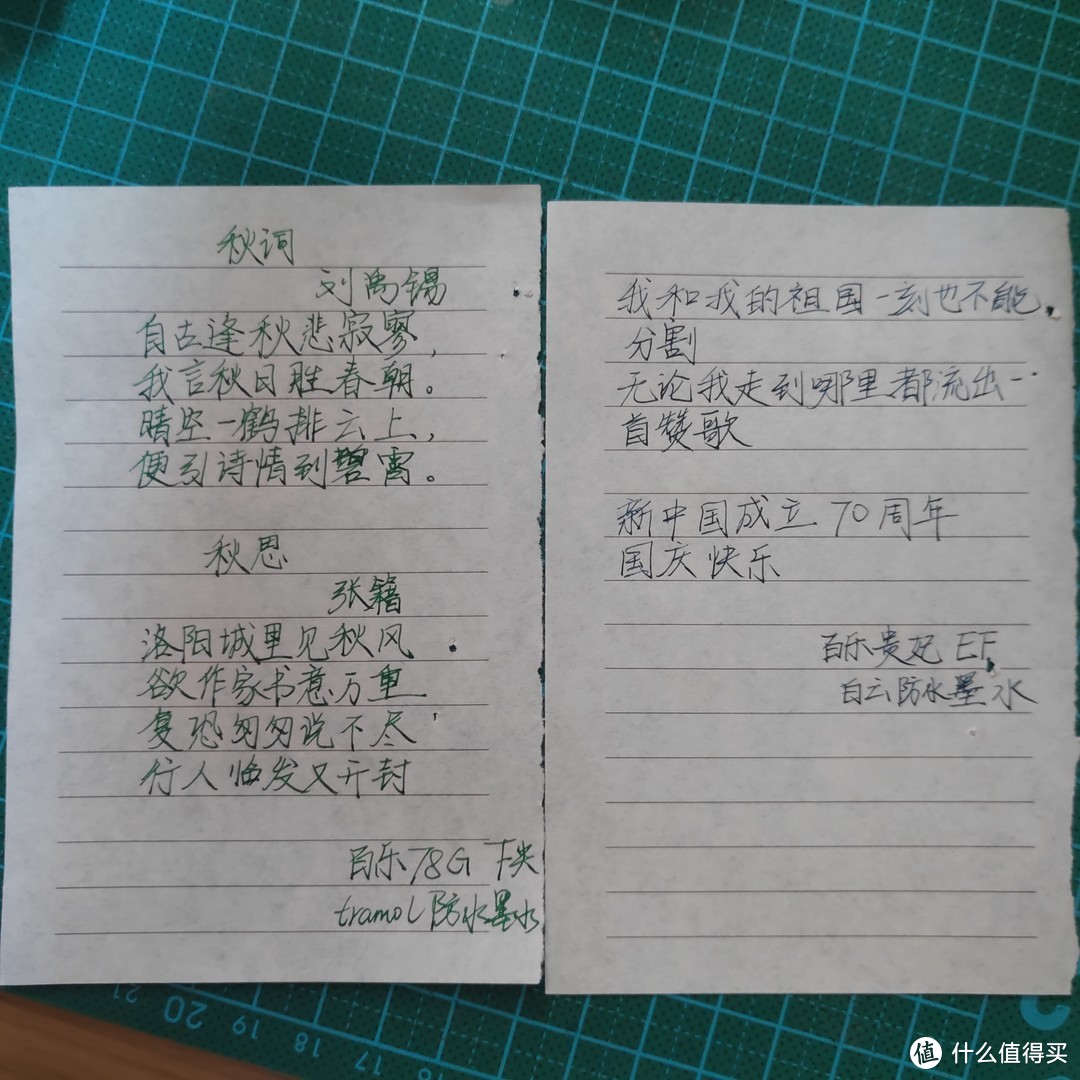 秋词
刘禹锡
自古逢秋悲寂寥，
我言秋日胜春朝。
晴空一鹤排云上，
便引诗情到碧霄。
秋思
张籍
洛阳城里见秋风
欲作家书意万重
复恐匆匆说不尽
行人临发又开封
百乐78G F尖
tramol 防水墨水
我和我的祖国一刻也不能
分割
无论我走到哪里都流出一
首赞歌
新中国成立70周年
国庆快乐
百乐贵妃 EF
白云防水墨水
21 20 19 18 17 16
值 什么值得买